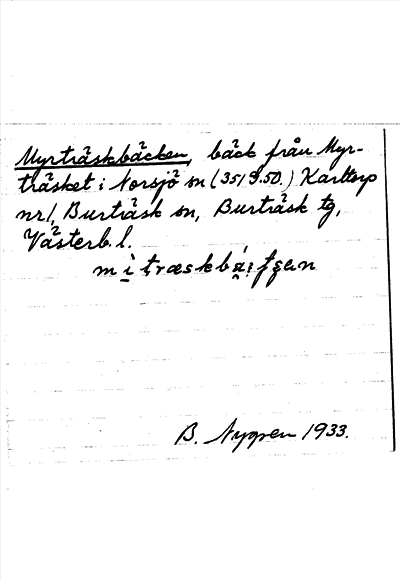 Myrträskbäcken, bäck från Myr-
träsket i Norsjö sn (351 9.50.) Karttorp
nr 1, Burträsk sn, Burträsk tg,
Västerb. l.
B. Nygren 1933.